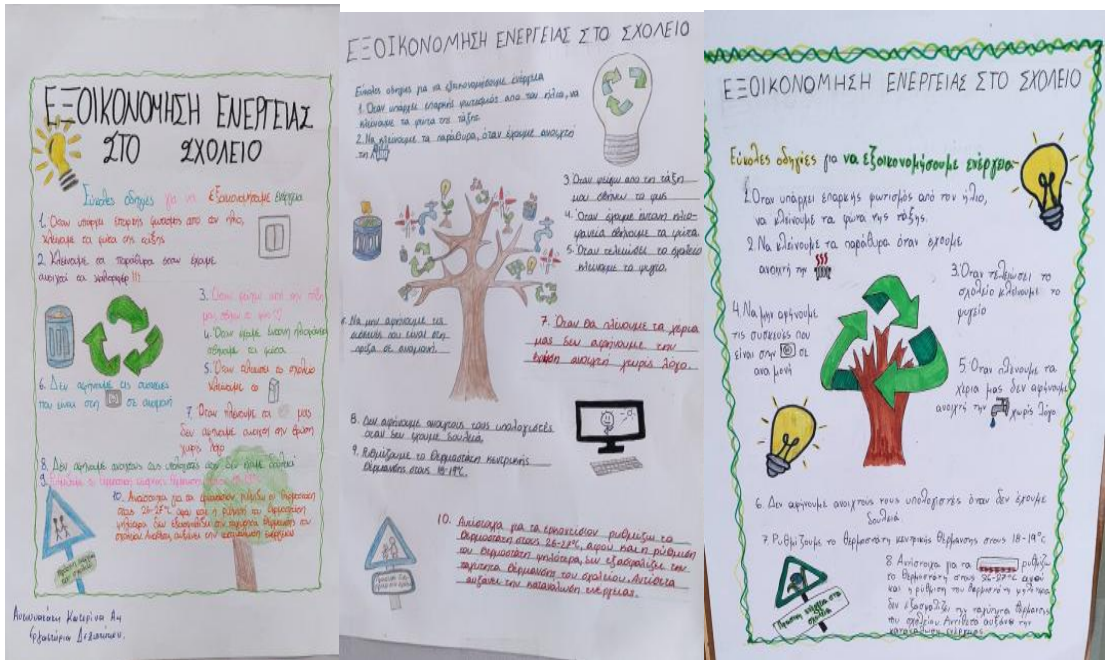 ΕΞΟΙΚΟΝΟΜΗΣΗ ΕΝΕΡΓΕΙΑΣ
ΣΤΟ ΣΧΟΛΕΙΟ
Εύκολες οδηγίες για να εξοικονομήσουμε ενέργεια
1. Όταν υπάρχει επαρκής φωτισμός από τον ήλιο,
κλείνουμε τα φώτα της τάξης
2. Κλείνουμε τα παράθυρα όταν έχουμε
ανοιχτά τα καλοριφέρ!!!
3. Όταν φεύγω από την τάξη
μου, σβήνω το φως
4. Όταν έχουμε έντονη ηλιοφάνεια
σβήνουμε τα φώτα
5. Όταν τελειώσει το σχολείο
κλείνουμε το
6. Δεν αφήνουμε τις συσκευές
που είναι στη σε αναμονή
7. Όταν πλένουμε τα μας
δεν αφήνουμε ανοιχτή την βρύση
χωρίς λόγο
8. Δεν αφήνουμε ανοιχτούς τους υπολογιστές όταν δεν έχουμε δουλειά
9.
10. Αντίστοιχα για τα ρυθμίζω το θερμοστάτη
στους 26-27°C αφού και η ρύθμιση του θερμοστάτη
ψηλότερα, δεν εξασφαλίζει την ταχύτητα θέρμανσης του
σχολείου. Αντίθετα, αυξάνει την κατανάλωση ενέργειας
Πράσινη
στα σχολεία
Κατερίνα Α4
Εργαστήρια Δεξιοτήτων.
ΕΞΟΙΚΟΝΟΜΗΣΗ ΕΝΕΡΓΕΙΑΣ ΣΤΟ ΣΧΟΛΕΙΟ
Εύκολες οδηγίες για να εξοικονομήσουμε ενέργεια
1. Όταν υπάρχει επαρκής φωτισμός από τον ήλιο, να
κλείνουμε τα φώτα της τάξης
2. Να κλείνουμε τα παράθυρα, όταν έχουμε ανοιχτή
τη
3. Όταν φεύγω από τη τάξη
μου σβήνω το φως
4. Όταν έχουμε έντονη ηλιο-
φάνεια σβήνουμε τα φώτα.
5. Όταν τελειώσει το σχολείο
κλείνουμε το ψυγείο.
6. Να μην αφήνουμε τις
συσκευές που είναι στη
πρίζα σε αναμονή.
7. Όταν θα πλένουμε τα χέρια
μας δεν αφήνουμε την
βρύση ανοιχτή χωρίς λόγο.
8. Δεν αφήνουμε ανοιχτούς τους υπολογιστές
όταν δεν έχουμε δουλειά.
9. Ρυθμίζουμε το θερμοστάτη κεντρικής
θέρμανσης στους 18-19°C.
10. Αντίστοιχα για τα ρυθμίζω το
θερμοστάτη στους 26-27°C, αφού και η ρύθμιση
του θερμοστάτη ψηλότερα, δεν εξασφαλίζει την
ταχύτητα θέρμανσης του σχολείου. Αντίθετα
αυξάνει την κατανάλωση ενέργειας.
ΕΞΟΙΚΟΝΟΜΗΣΗ ΕΝΕΡΓΕΙΑΣ ΣΤΟ ΣΧΟΛΕΙΟ
Εύκολες οδηγίες για να εξοικονομήσουμε ενέργεια
1. Όταν υπάρχει επαρκής φωτισμός από τον ήλιο,
να κλείνουμε τα φώτα της τάξης.
2 Να κλείνουμε τα παράθυρα όταν έχουμε
ανοιχτή την
3. Όταν τελειώσει το
σχολείο κλείνουμε το
ψυγείο
4. Να μην αφήνουμε
τις συσκευές που
είναι στην σε
αναμονή
5. Όταν πλένουμε τα
χέρια μας δεν αφήνουμε
ανοιχτή την χωρίς λόγο
6. Δεν αφήνουμε ανοιχτούς τους υπολογιστές όταν δεν έχουμε
δουλειά
7. Ρυθμίζουμε το θερμοστάτη κεντρικής θέρμανσης στους 18-19°C
8. Αντίστοιχα για τα ρυθμίζω
το θερμοστάτη στους 26-27°C αφού
και η ρύθμιση του θερμοστάτη ψηλότερα
δεν εξασφαλίζει την ταχύτητα θέρμανσης
του σχολείου. Αντίθετα αυξάνει την
κατανάλωση ενέργειας
Πράσινη στα
σχολεία